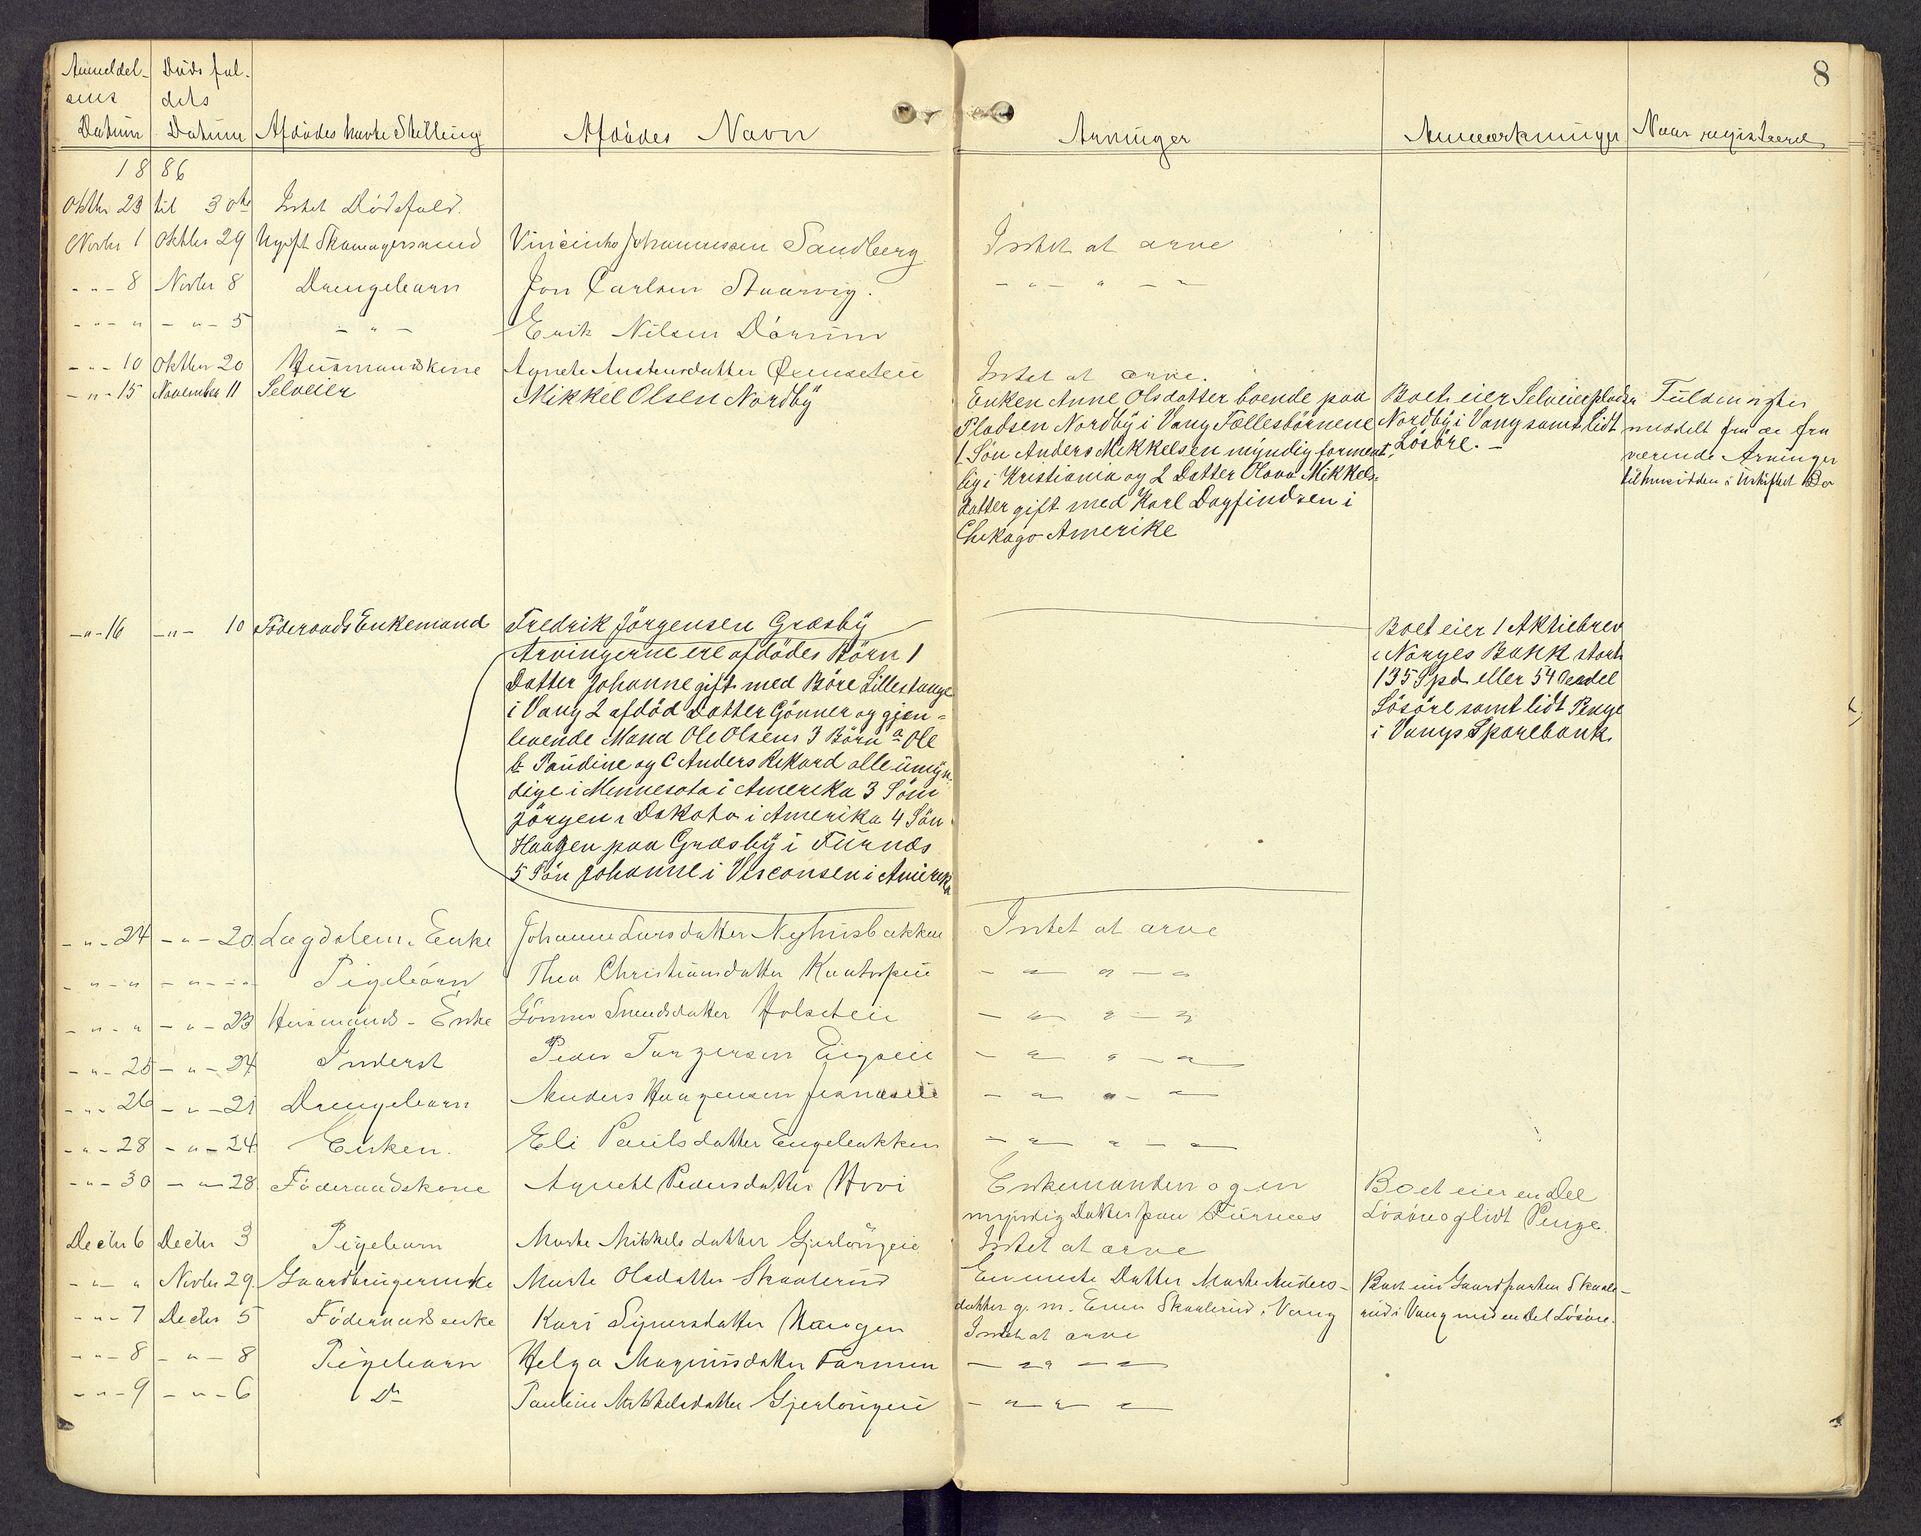 8
Anmeldel- Døds fal-
sens dets
Datum Datum Afdødes havte Stilling Afdødes Navn Arvinger Anmærkninger Naar registreret
18 86
Oktbr 23 til 30te Intet Dødsfald.
Novbr 1 Oktbr 29 Ugift Skomagersvend Johannesen Sandberg Intet at arve
- " - 8 Novbr 8 Drengebarn Jon Carlsen Staarvig. - " - " - " -
- " - " - " - 5 - " - Erik Nilsen Dørum
- " - 10 Oktbr 20 Husmandskone Agnete Austensdatter Intet at arve.
- " - 15 November 11 Selveier Mikkel Olsen Nordbÿ
Enken Anne Olsdatter boende paa
Pladsen Nordbÿ i Vang Fællesbørnene
1 Søn Anders Mikkelsen mÿndig forment-
lig i Kristiania og 2 Datter Olava Mikkels-
datter gift med Karl Dagfindsen i
Chekago Amerike
Boet eier Selveierpladsen
Nordbÿ i Vang samt lidt
Løsøre. -
Fuldmigtig
meddelt fra de fra
værende Arvinger
til hensidden i Uskiftet Bo
- " - 16 - " - 10 FøderaadsEnkemand Fredrik Jørgensen Græsbÿ
Arvingerne ere afdødes Børn 1
Datter Johanne gift med Børe Lillestange
i Vang 2 afdød Datter Gønner og gjen-
levende Mand Ole Olsens 3 Børn a Ole
b Paudine og C Anders Rekard alle umÿn-
dige i Minnesota i Amerika 3 Søn
Jørgen i Dakota i Amerika 4 Søn
Haagen paa Græsbÿ i Furnæs
5 Søn Johanne i Visconsen i Amerika
Boet eier 1 Aktiebrev
i Norges Bank stort
135 Spd eller 54 Deedel
Løsøre samt lidt Penge
i Vangs Sparebank.
- " - 24 - " - 20 Lægdslem. Enke Johanne Larsdatter Nyhusbakken Intet at arve
- " - " - " - " - Pigebarn Thea Christiansdatter - " " - "
- " - " - " - 23 Husmands-Enke Gønner Svendsdatter Holsteie - " " - "
- " - 25 - " - 24 Inderst Peder - " " - "
- " - 26 - " - 21 Drengebarn Anders Haagensen - " " - "
- " - 28 - " - 24 Enken. Eli Paulsdatter Engebakken - " " - "
- " - 30 - " - 28 Føderaadskone Agnethe Pedersdatter Hovi Enkemanden og en Boet eier en Del
myndig Datter paa Furnæs Løsøre og lidt Penge.
Decbr 6 Decbr 3 Pigebarn Marte Mikkelsdatter Gjerlöngeie Intet at arve
- " - " Novbr 29. Gaardbrugerenke Marte Olsdatter Skaalerud Eneneste Datter Marte Anders- Boet eier Gaardparten Skaale-
datter g. m. Even Skaalerud i Vang rud i Vang med en Del Løsøre.
- " - 7 Decbr 5 Føderaadsenke Kari Sigversdatter Haugen Intet at arve
- " - 8 - " - 8 Pigebarn Helga Magnusdatter Farmen - " " - -
- " - 9 - " - 6 Do Pauline Mikkelsdatter Gjerlöngeie - " " -